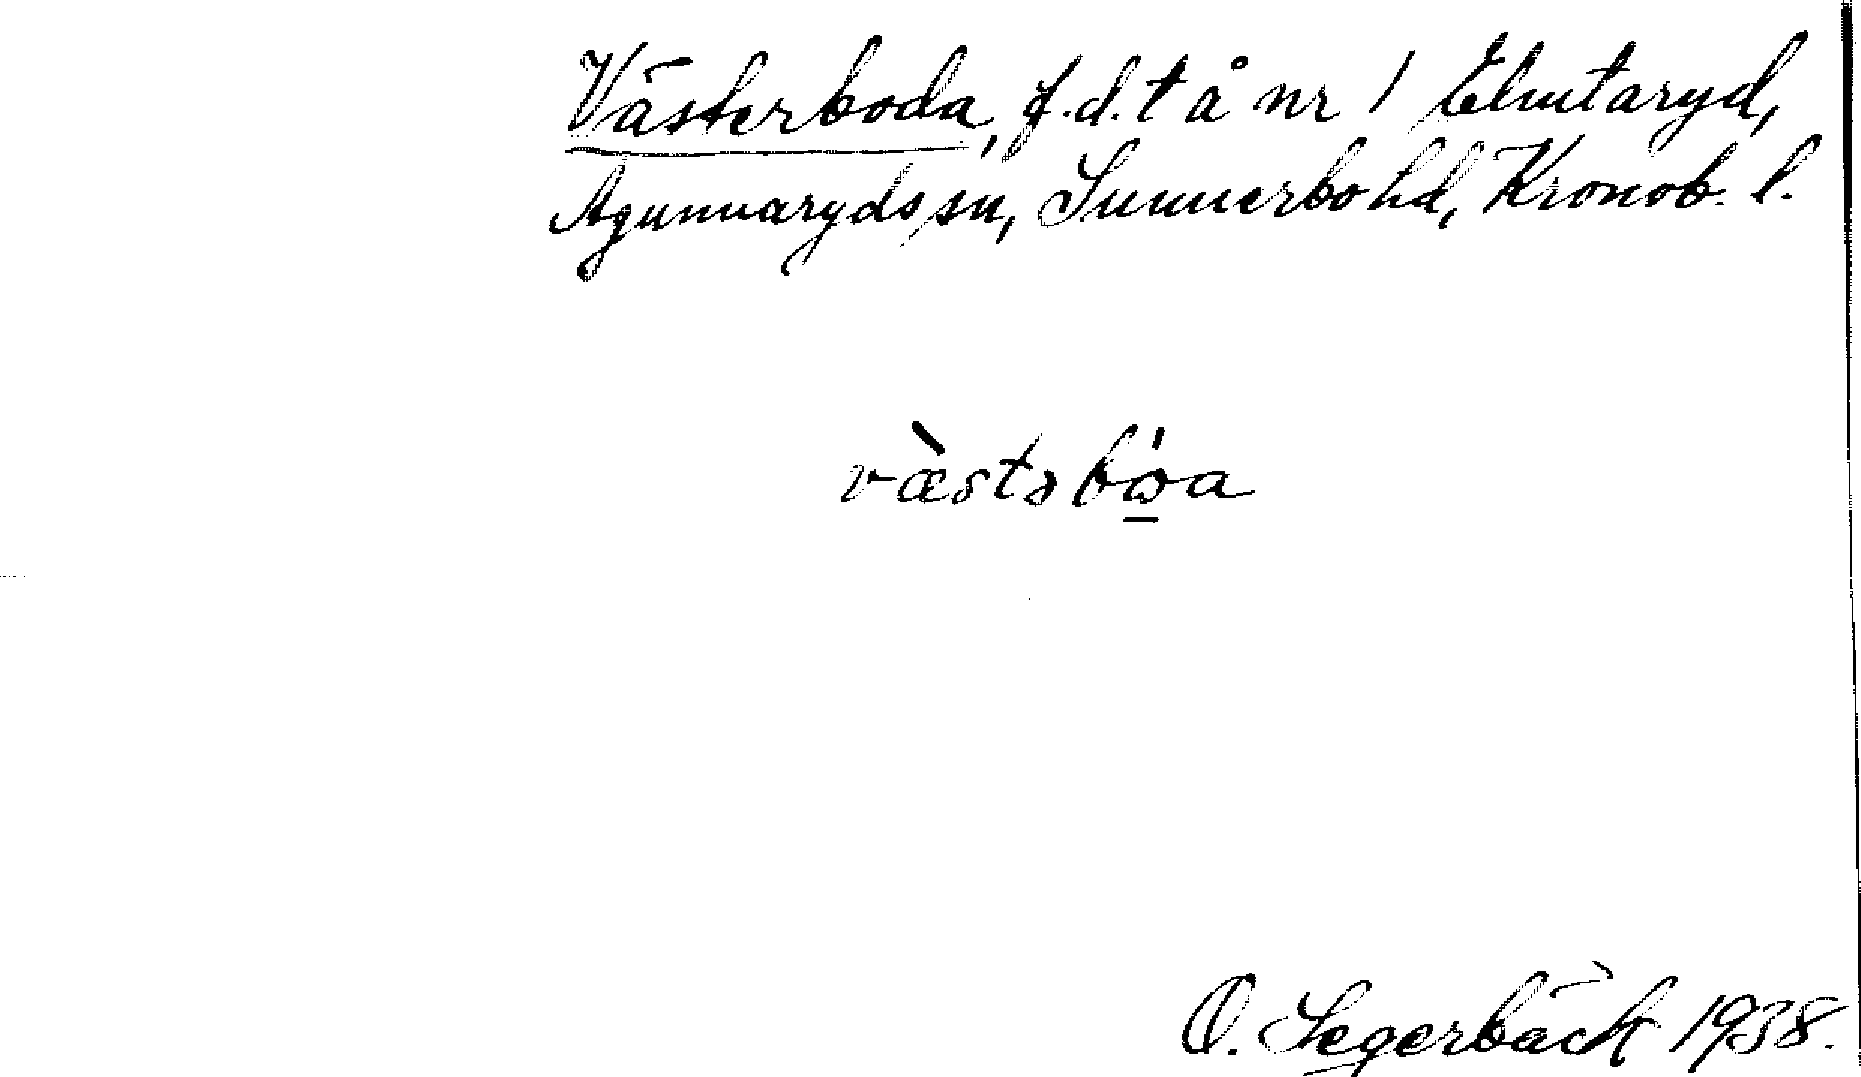 Västerboda, f.d. t å nr 1 Elmtaryd,
Agunnaryds sn, Sunnerbo hd, Kronob. l.
væ̀stəbώ̲a
O. Segerbäck 1938.